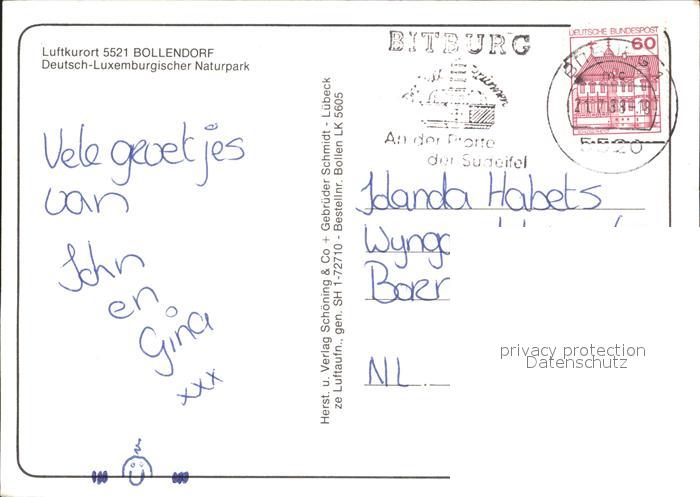 Luftkurort 5521 BOLLENDORF
Deutsch-Luxemburgischer Naturpark
Vele groetjes
van
John
en
Gina
xxx
Herst. u. Verlag Schöning & Co + Gebrüder Schmidt - Lübeck
ze Luftaufn., gen. SH 1-72710 - Bestellnr. Bollen LK 5605
BITBURG
An der Pforte
der Südeifel
DEUTSCHE BUNDESPOST
60
5520
Jolanda Habets
NL
privacy protection
Datenschutz